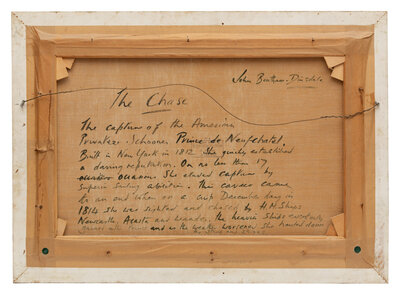 John Bentham-Dinsdale
The Chase
The capture of the American
Privateer Schooner Prince de Neufchatel.
Built in New York in 1812 She quickly established
a daring reputation. On no less than 17
occasions She eluded capture by
Superior Sailing abilities. The career came
to an end when on a December day in
1814 She was sighted and chased by H.M. Ships
Newcastle, Acasta and Leander, the heavier Ships eventually
and as the weather worsened She hauled down